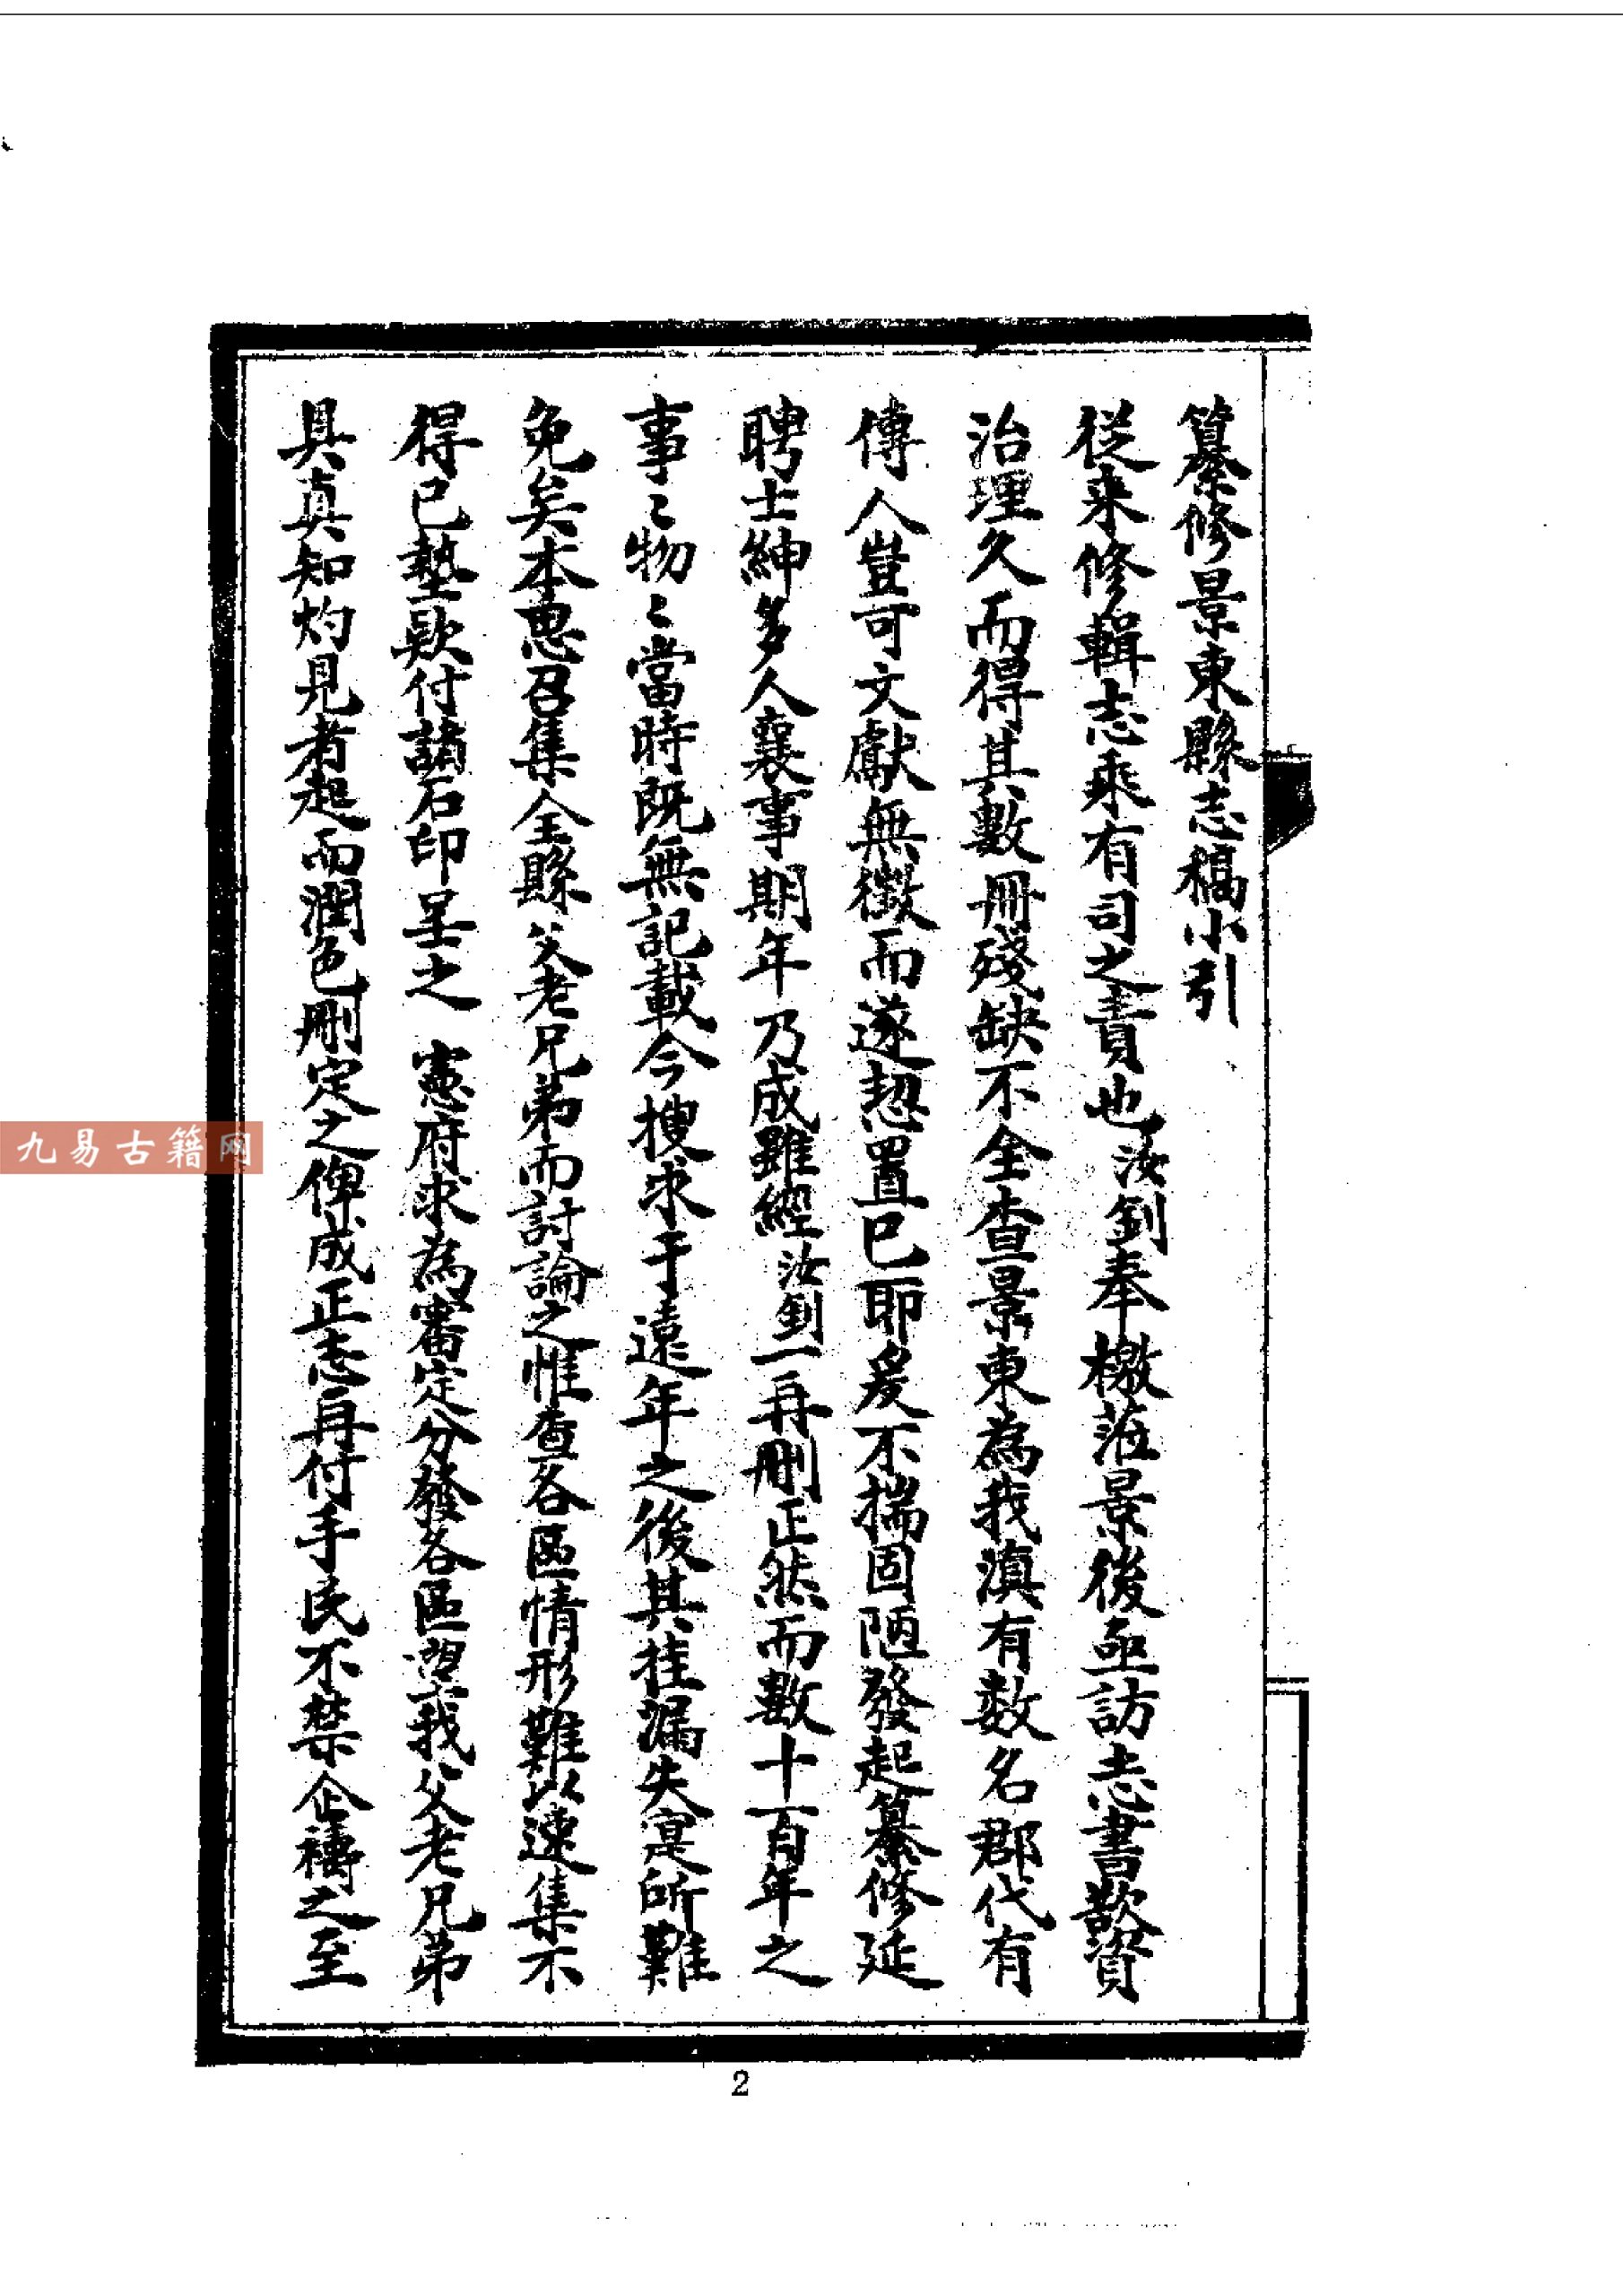 纂修景東縣志稿小引
從来修輯志乘有司之責也汝釗奉檄蒞景後亟訪志書歆資
治理久而得其數冊殘缺不全查景東為我滇有数名郡代有
傳人豈可文獻無徵而遂恝置已耶爰不揣固陋發起纂修延
聘士紳多人襄事期年乃成雖經汝釗一再刪正然而數十百年之
事〻物〻當時既無記載今搜求于遠年之後其挂漏失寔所難
免矣本思召集全縣父老兄弟而討論之惟查各區情形難以速集不
得已墊欵付諸石印呈之 憲府求為審定分發各區望我父老兄弟
具真知灼見者起而潤色刪定之俾成正志再付手民不禁企禱之至
2
九易古籍网